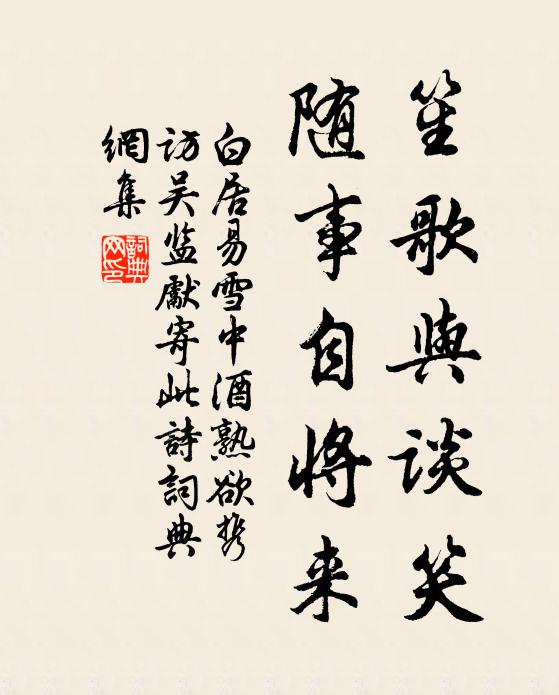 笙歌與谈笑
随事自将来
白居易雪中酒熟欲携
访吴监獻寄此詩詞典
網集
詞典网印